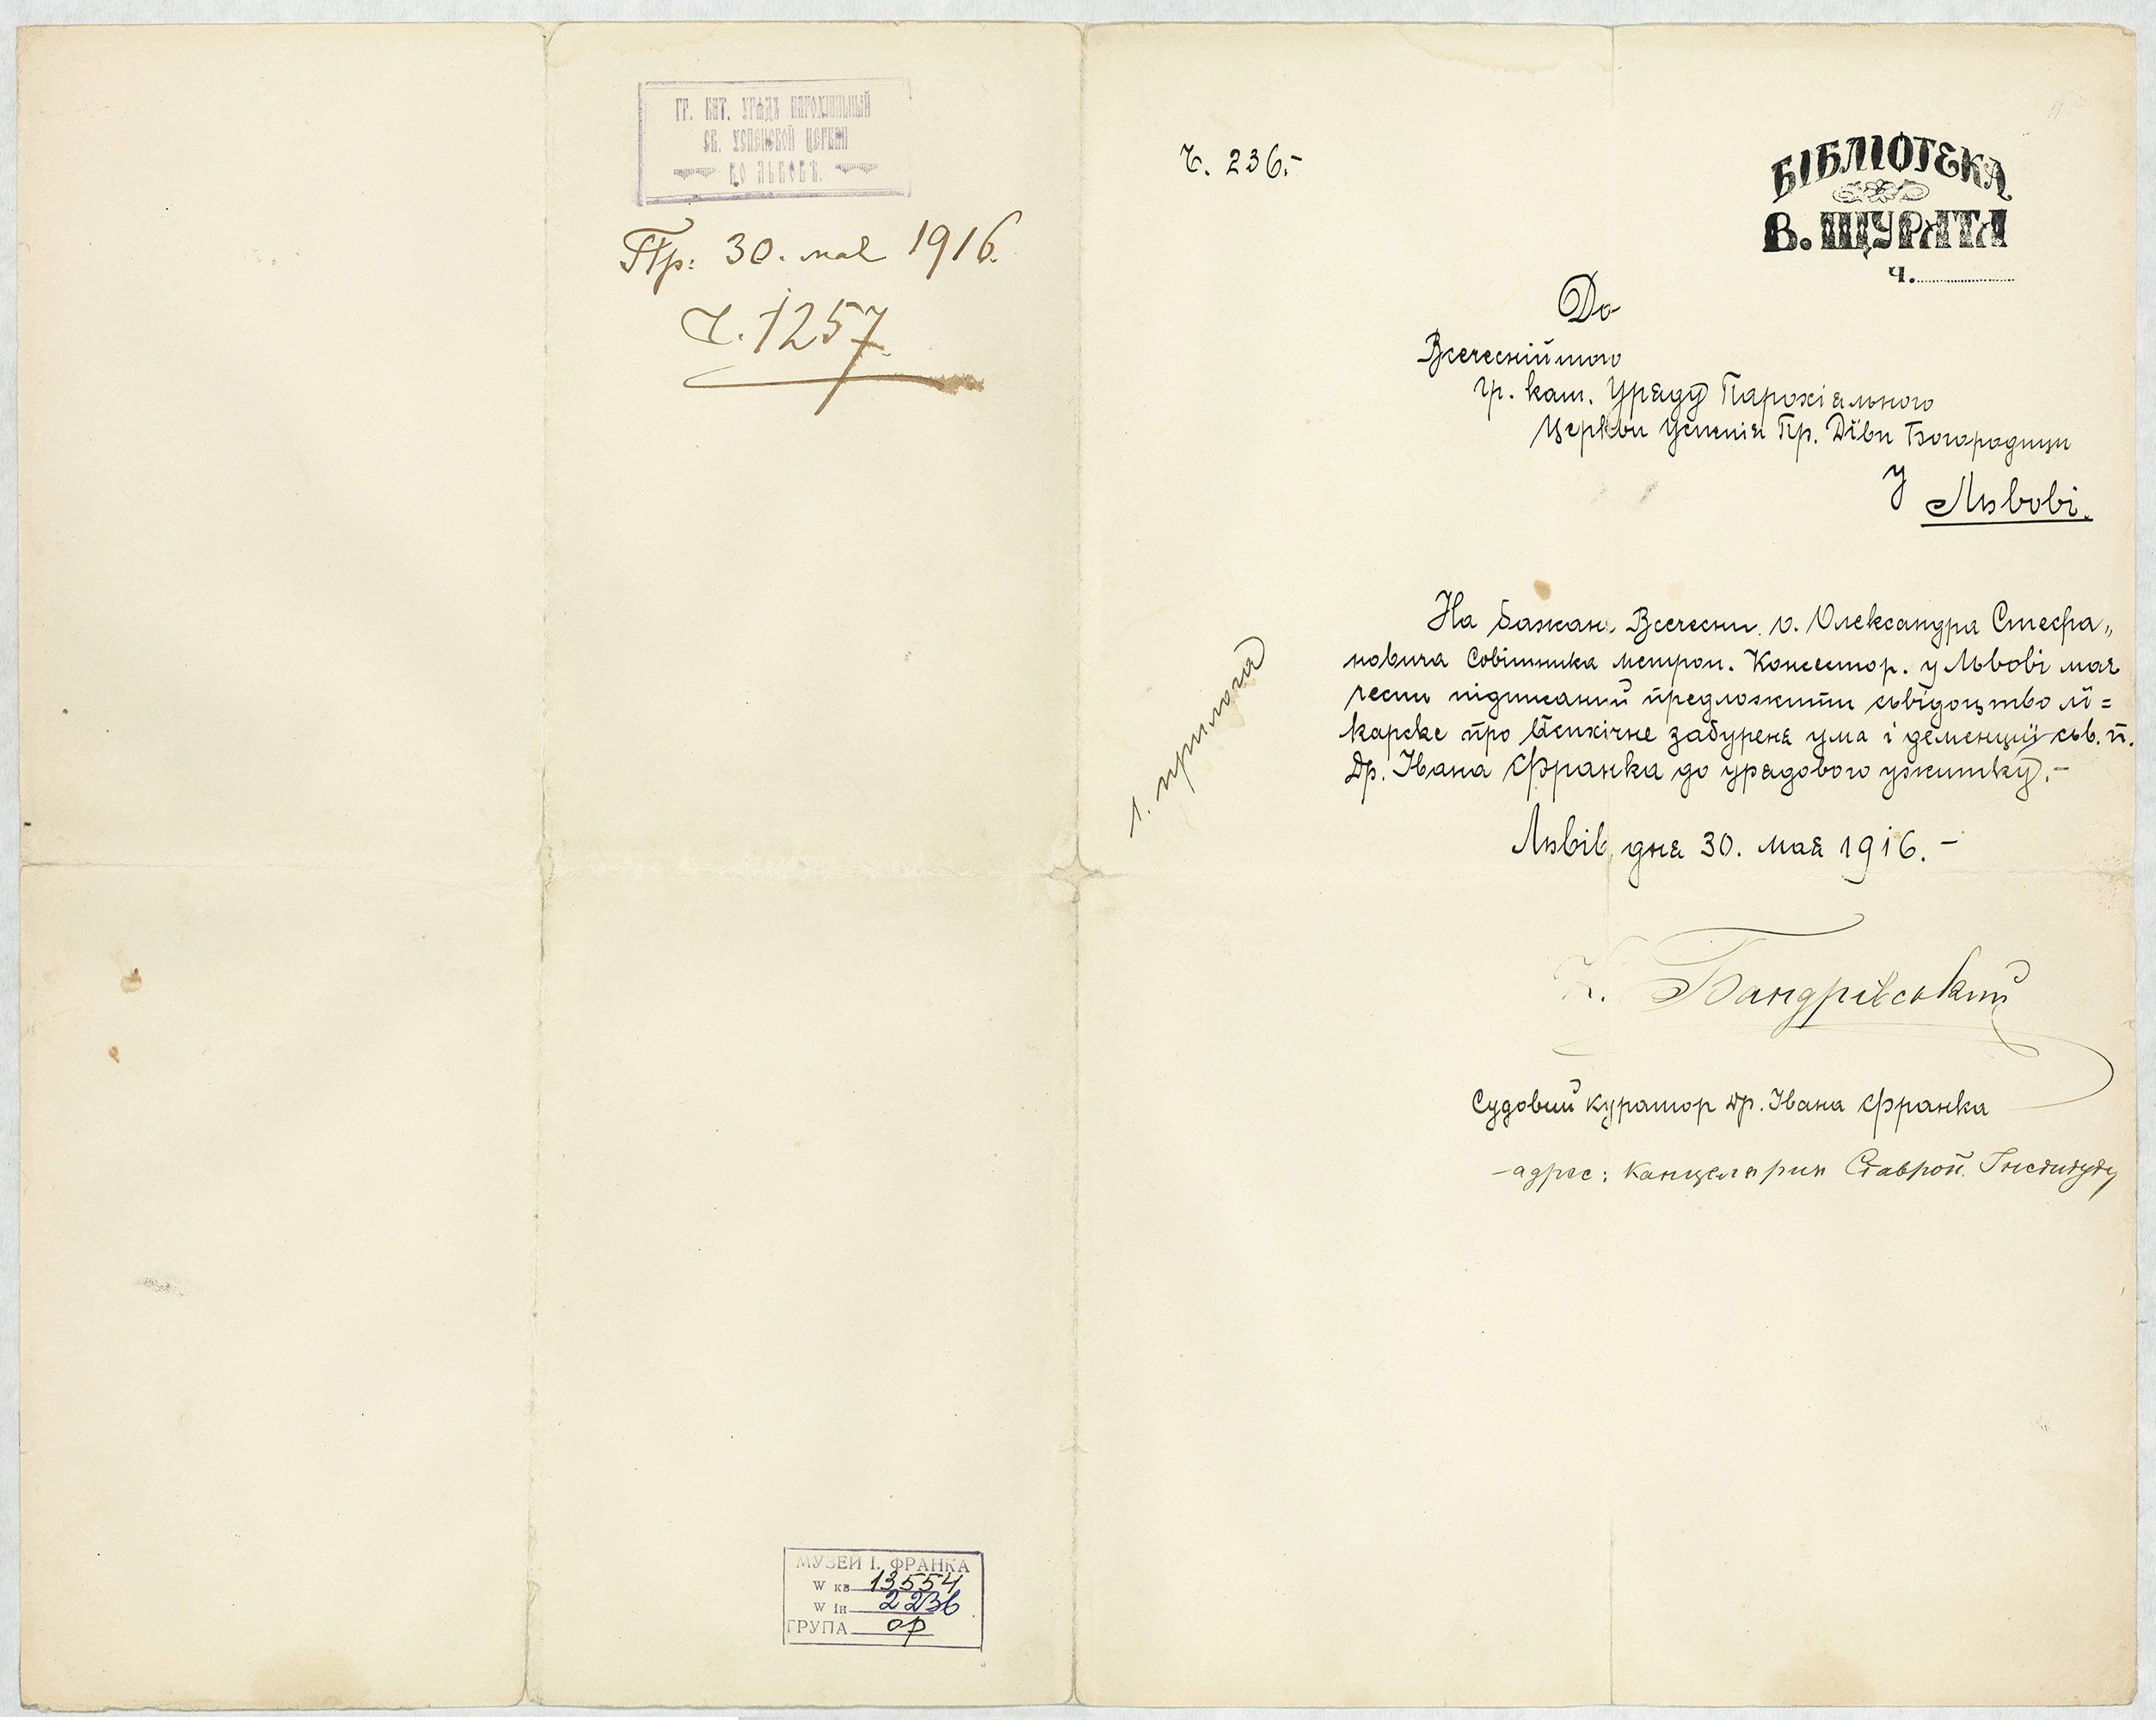 ГР. КАТ. УРЯДЪ ПАРОХІЯЛЬНЫЙ
СВ. УСПЕНСКОЙ ЦЕРКВИ
ВО ЛЬВОВѢ.
Пр: 30. мая 1916.
Ч. 1257
МУЗЕЙ І. ФРАНКА
№ кв 13554
№ Ін 2236
ГРУПА ор
Ч. 236.-
БІБЛІОТЕКА
В. ЩУРАТА
Ч.
До
Всечеснійшого
гр. кат. Уряду Парохіяльного
Церкви Успенія Пр. Діви Богородици
у
Львові.
1. прилога
На бажанє Всечесн. о. Олександра Стефа„
новича Совітника метроп. Консистор. у Львові має
честь підписаний предложити сьвідоцтво лї=
карске про психічне забуренє ума і деменциї сьв. п.
Др. Івана Франка до урядового ужитку.-
Львів, дня 30. мая 1916.-
К. Бандрівський
Судовий куратор др. Івана Франка
-адрес: Канцелярия Ставроп. Інституту